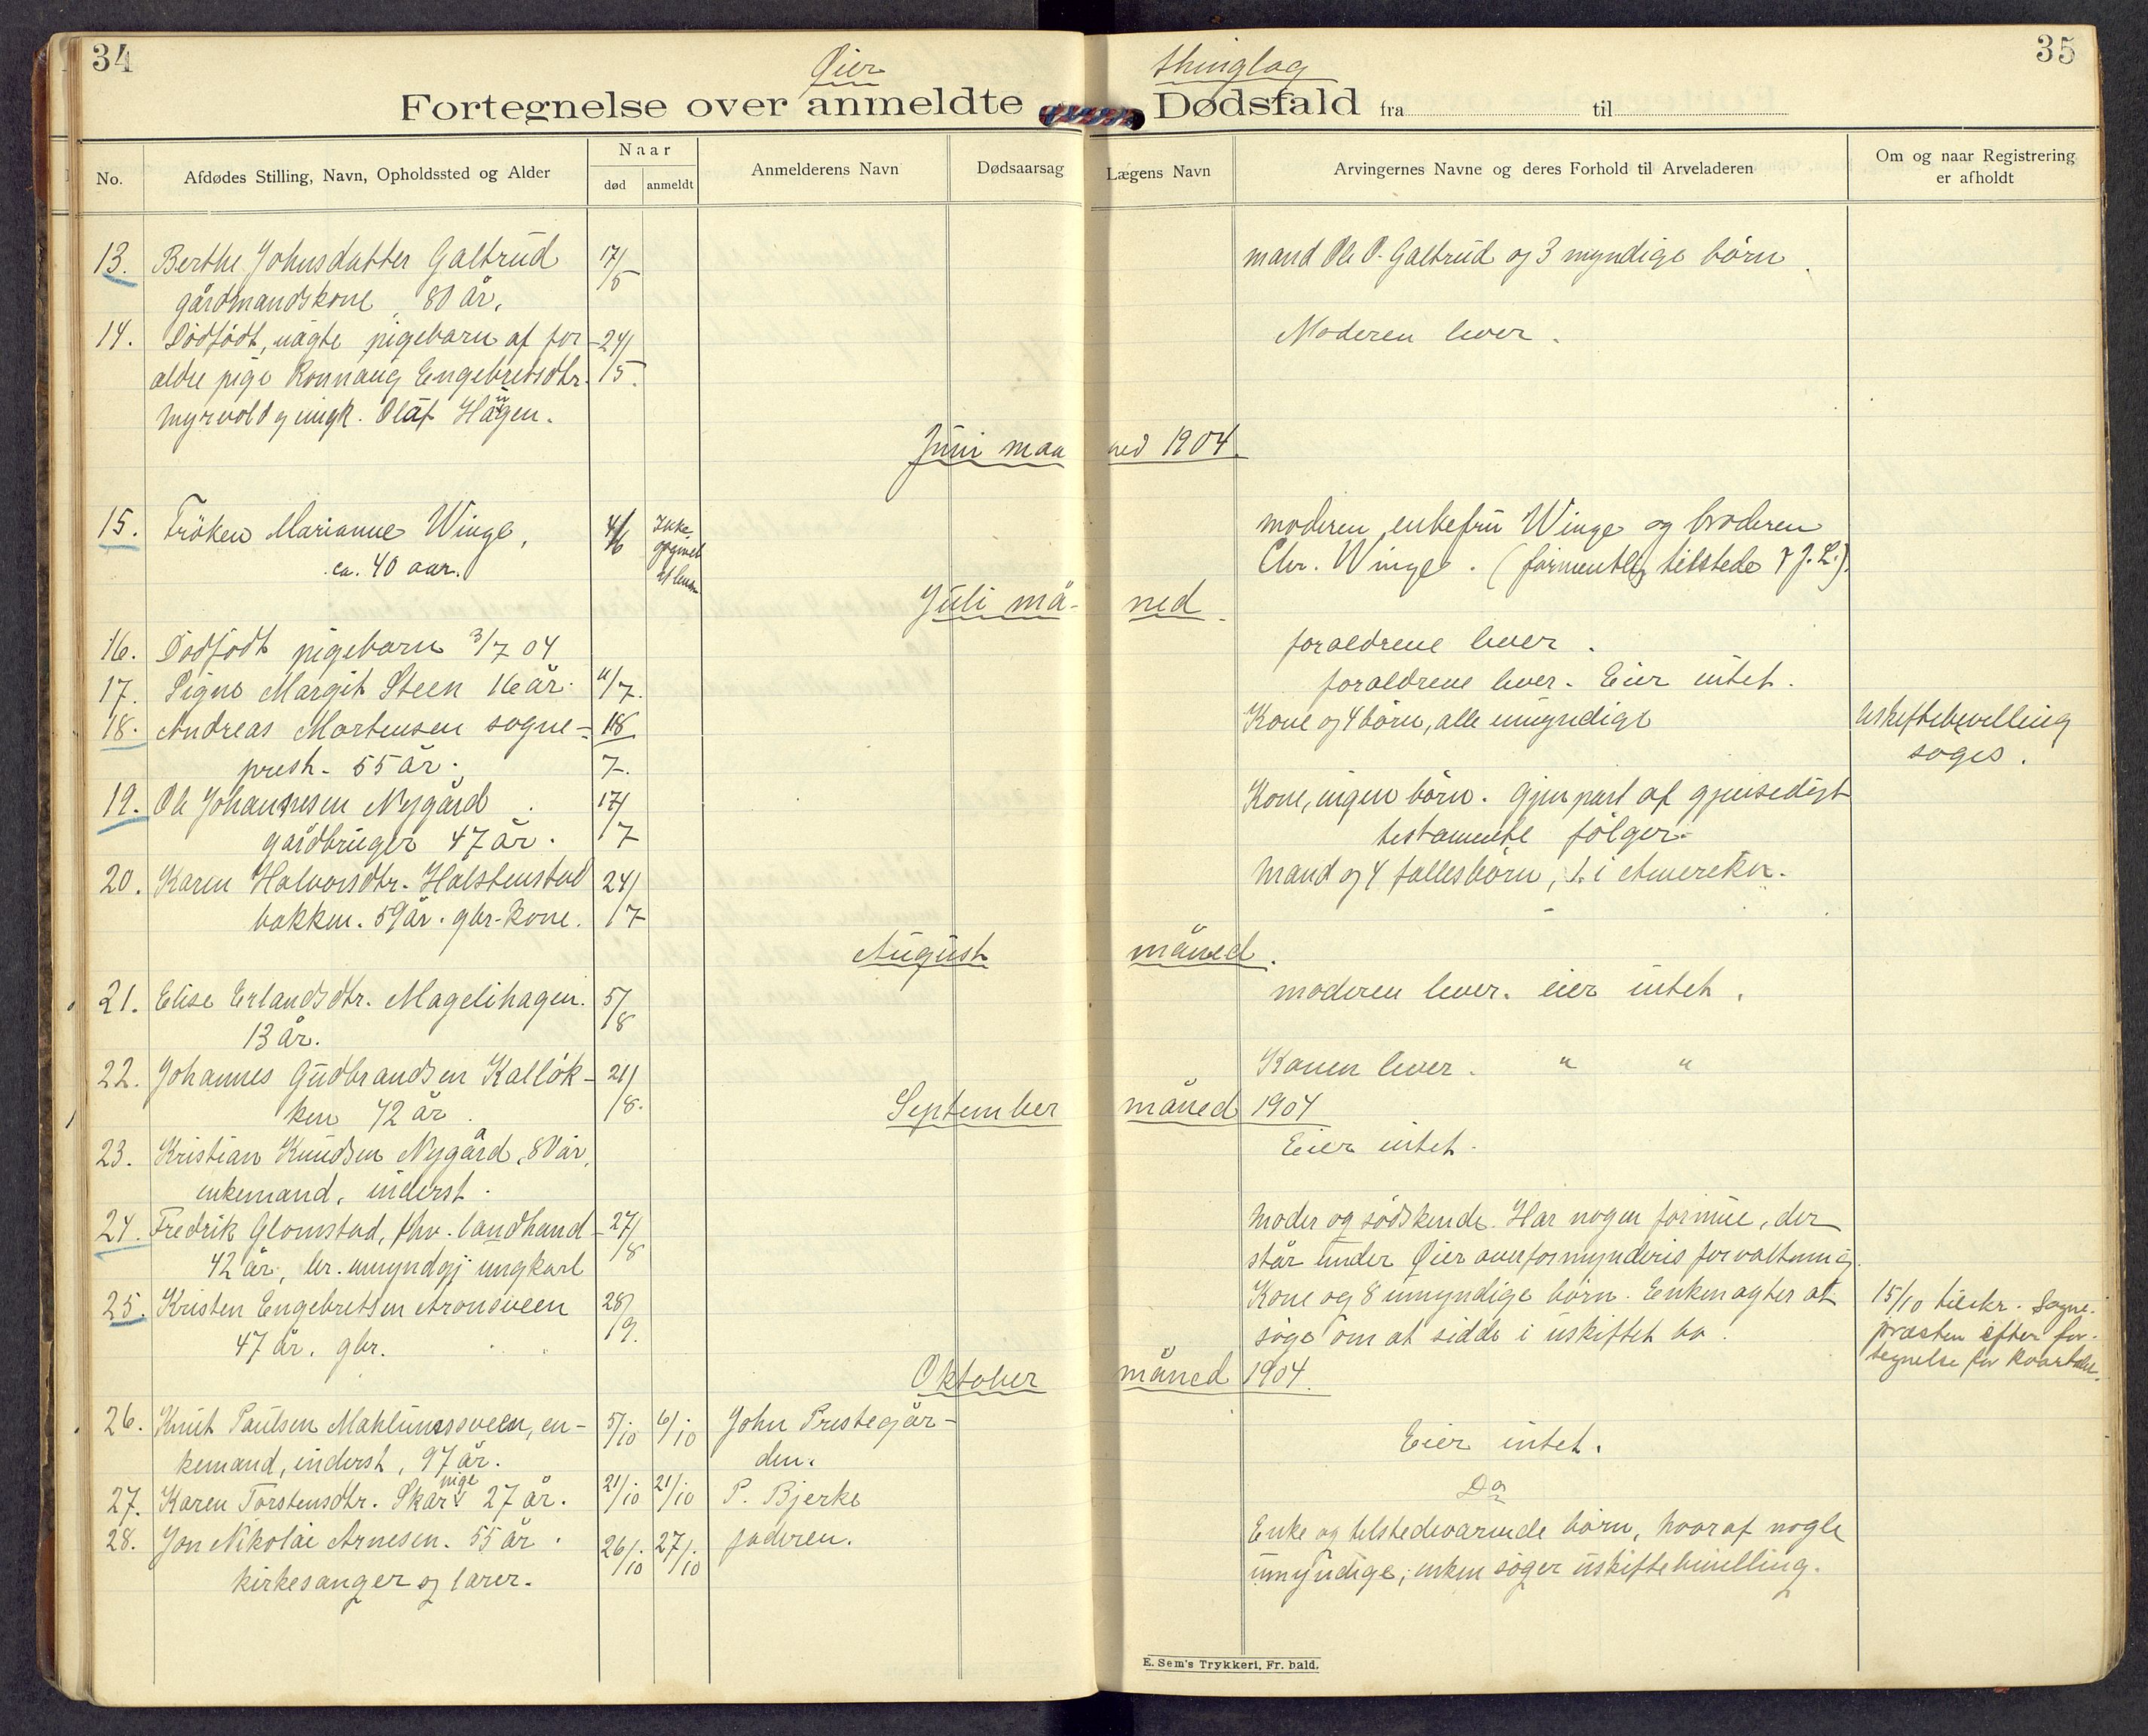 34
35
Øier
thinglag
Fortegnelse over anmeldte
Dødsfald fra til
No.
Afdødes Stilling, Navn, Opholdssted og Alder
Naar
død
anmeldt
Anmelderens Navn
Dødsaarsag
Lægens Navn
Arvingernes Navne og deres Forhold til Arveladeren
Om og naar Registrering
er afholdt
13. Berthe Johnsdatter Galtrud 17/5 mand Ole O. Galtrud og 3 myndige børn
gårdmandskone, 80 år.
14. Dødfødt, uægte pigebarn af for- 24/5. Moderen lever.
ældre pige Ronnaug Engebretsdtr.
Myrvold og ungk. Olaf Haugen.
Juni maaned 1904.
15. Frøken Marianne Winge, 4/6 Ikke moderen enkefru Winge og broderen
ca. 40 aar. Chr. Winge. (formentlig tilstede
Juli måned.
16. Dødfødt pigebarn 3/7 04 forældrene lever.
17. Signe Margit Steen 16 år. 11/7. forældrene lever. Eier intet.
18. Andreas Mortensen sogne- 18/7. Kone og 4 børn, alle umyndige Uskiftebevilling
prest. 55 år. søges.
19. Ole Johannesen Nygård 17/7 Kone, ingen børn. Gjenpart af gjensidigt
gårdbruger 47 år. testamente følger.
20. Karen Halvorsdtr. Halstenstad 24/7 Mand og 4 fællesbørn, 1 i Amerika.
bakken. 59 år. gbr. kone.
August måned.
21. Elise Erlandsdtr. Magelihagen. 5/8 moderen lever. eier intet.
13 år.
22. Johannes Gudbrandsen Kalløk- 21/8. Konen lever. " "
ken 72 år.
September måned 1904
23. Kristian Knudsen Nygård, 80 år, Eier intet.
enkemand, inderst.
24. Fredrik Glomstad, fhv. landhand- 27/8 Moder og sødskende. Har nogen formue, der
42 år, umyndgj ungkarl står under Øier overformynderis forvaltning.
25. Kristen Engebretsen Aronsveen 28/9. Kone og 8 umyndige børn. Enken agter at 15/10 tilskr. Sogne-
47 år. gbr. søge om at sidde i uskiftet bo. præsten efter for-
tegnelse for kvartalet.
Oktober måned 1904.
26. Knut Paulsen Mahlumssveen, en- 5/10 6/10 John Prestegår- Eier intet.
kemand, inderst, 97 år. den.
27. Karen Torstensdtr. Skar pige 27 år. 21/10 21/10 P. Bjerke Do
28. Jon Nikolai Arnesen. 55 år. 26/10 27/10 faderen. Enke og tilstedeværende børn, hvoraf nogle
kirkesanger og lærer. umyndige; enken søger uskiftebevilling.
E. Sem's Trykkeri, Fr. hald.